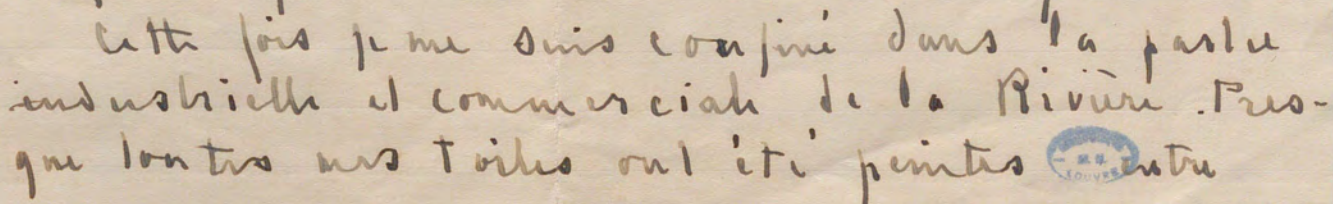 Cette fois je me suis confiné dans la partie
industrielle et commerciale de la Rivière. Pres-
que toutes mes toiles ont été peintes entre
LOUVRE